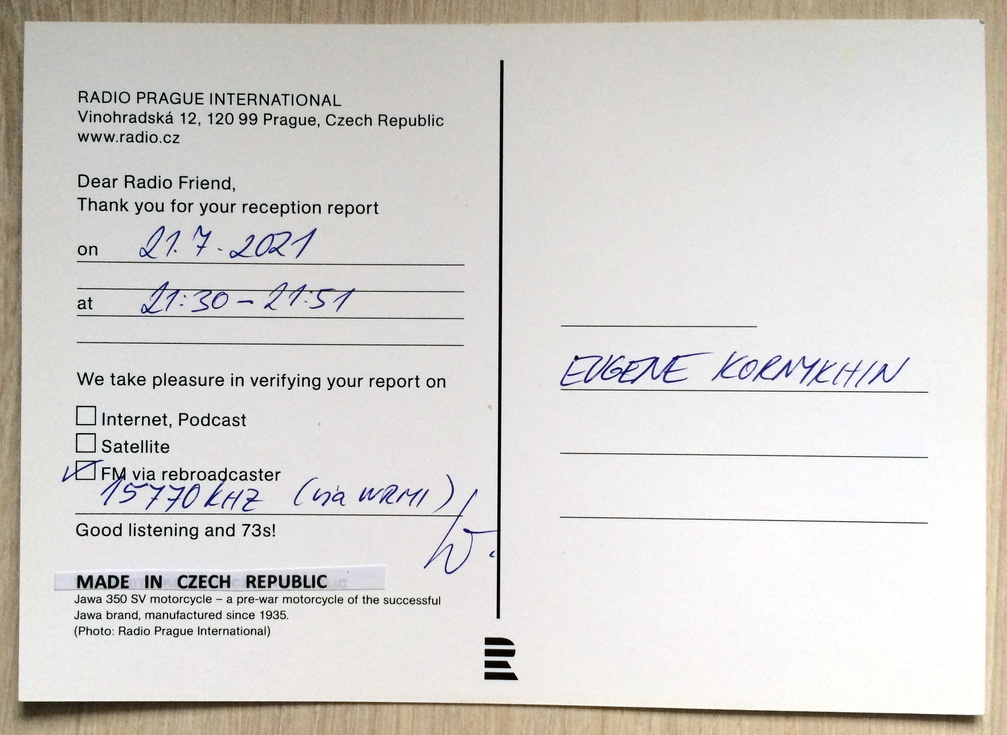 RADIO PRAGUE INTERNATIONAL
Vinohradská 12, 120 99 Prague, Czech Republic
www.radio.cz
Dear Radio Friend,
Thank you for your reception report
on 21.7.2021
at 21:30-21:51
We take pleasure in verifying your report on
Internet, Podcast
Satellite
FM via rebroadcaster
15770 kHZ (via WRMI)
Good listening and 73s!
MADE IN CZECH REPUBLIC
Jawa 350 SV motorcycle – a pre-war motorcycle of the successful
Jawa brand, manufactured since 1935.
(Photo: Radio Prague International)
EUGENE KORNYKHIN